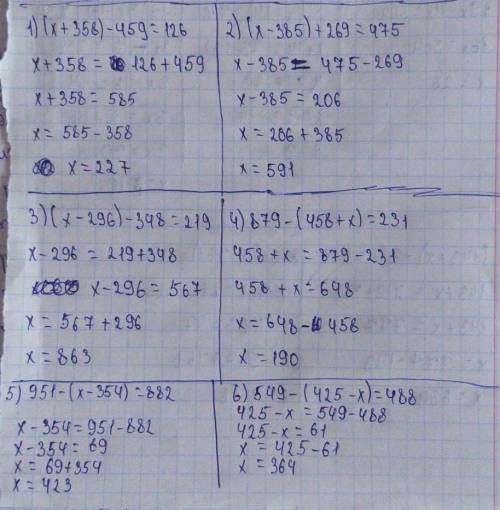 1) (x+358)-459=126
x+358=126+459
x+358=585
x=585-358
x=227
2) (x-385)+269=475
x-385=475-269
x-385=206
x=206+385
x=591
3) (x-296)-348=219
x-296=219+348
x-296=567
x=567+296
x=863
4) 879-(458+x)=231
458+x=879-231
458+x=648
x=648-458
x=190
5) 951-(x-354)=882
x-354=951-882
x-354=69
x=69+354
x=423
6) 549-(425-x)=488
425-x=549-488
425-x=61
x=425-61
x=364